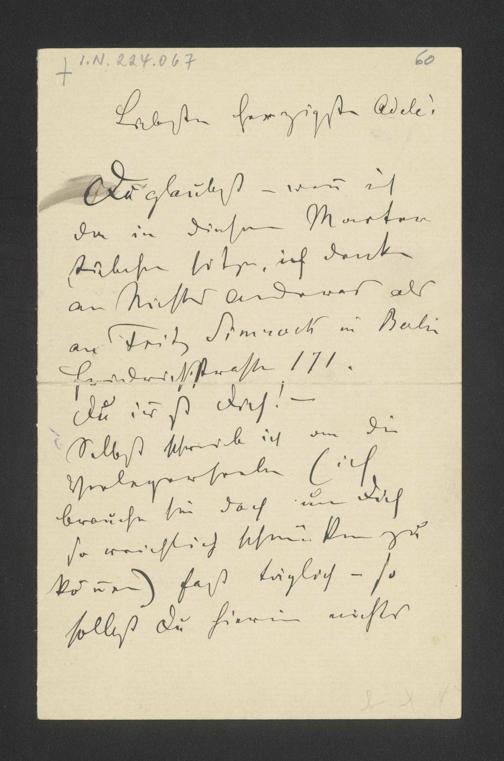 I.N. 224.067
60
Liebste herzigste Adele!
Du glaubst – wen̄ ich
da in diesem Marter
stübchen sitze, ich denke
an Nichts anderes als
an Fritz Simrock in Berlin
Friedrichstrasse 171.
Du irrst Dich! –
Selbst schreib ich an die
Verlegerseele (ich
brauche sie doch um Dich
so reichlich schmücken zu
kön̄en) fast täglich – so
sollst Du hierin nichts